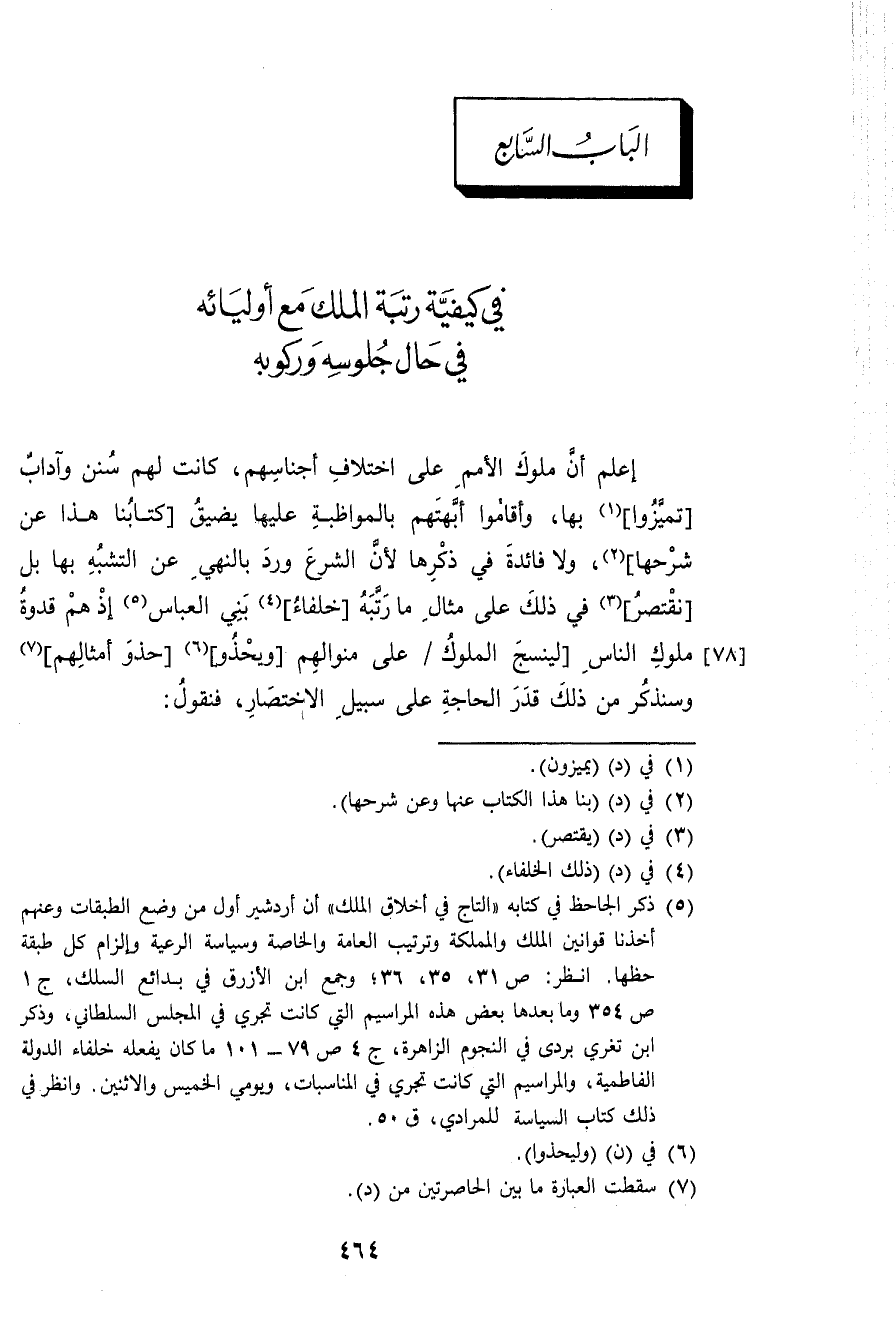 البَابُ السَّابع
في كيفيَّة رتبَة الملك مَع أوليَائه
في حَال جُلوسِه وَركوبه
إعلم أنَّ ملوكَ الأممِ على اختلافِ أجناسِهم، كانت لهم سُنن وآدابٌ
[تميَّزُوا](١) بها، وأقامُوا أبَّهتَهم بالمواظبةِ عليها يضيقُ [كتابُنا هذا عن
شرْحها](٢)، ولا فائدةَ في ذكْرِها لأنَّ الشرعَ وردَ بالنهيِ عن التشبُهِ بها بل
[نقْتصرُ](٣) في ذلكَ على مثالِ ما رَتَّبَهُ [خلفاءُ](٤) بَنِي العباس(٥) إذْ همْ قدوةُ
[٧٨] ملوكِ الناسِ [لينسجَ الملوكُ / على منوالهِم [ويحْذُو](٦) [حذوَ أمثالِهم](٧)
وسنذكُر من ذلكَ قدَرَ الحاجةِ على سبيلِ الاختصَارِ، فنقولُ:
(١) في (د) (يميزون).
(٢) في (د) (بنا هذا الكتاب عنها وعن شرحها).
(٣) في (د) (يقتصر).
(٤) في (د) (ذلك الخلفاء).
(٥) ذكر الجاحظ في كتابه «التاج في أخلاق الملك» أن أردشير أول من وضع الطبقات وعنهم
أخذنا قوانين الملك والمملكة وترتيب العامة والخاصة وسياسة الرعية وإلزام كل طبقة
حظها. انظر: ص ٣١، ٣٥، ٣٦؛ وجمع ابن الأزرق في بدائع السلك، ج ١
ص ٣٥٤ وما بعدها بعض هذه المراسيم التي كانت تجري في المجلس السلطاني، وذكر
ابن تغري بردى في النجوم الزاهرة، ج ٤ ص ٧٩ – ١٠١ ما كان يفعله خلفاء الدولة
الفاطمية، والمراسيم التي كانت تجري في المناسبات، ويومي الخميس والاثنين. وانظر في
ذلك كتاب السياسة للمرادي، ق ٥٠.
(٦) في (ن) (وليحذوا).
(٧) سقطت العبارة ما بين الحاصرتين من (د).
٤٦٤